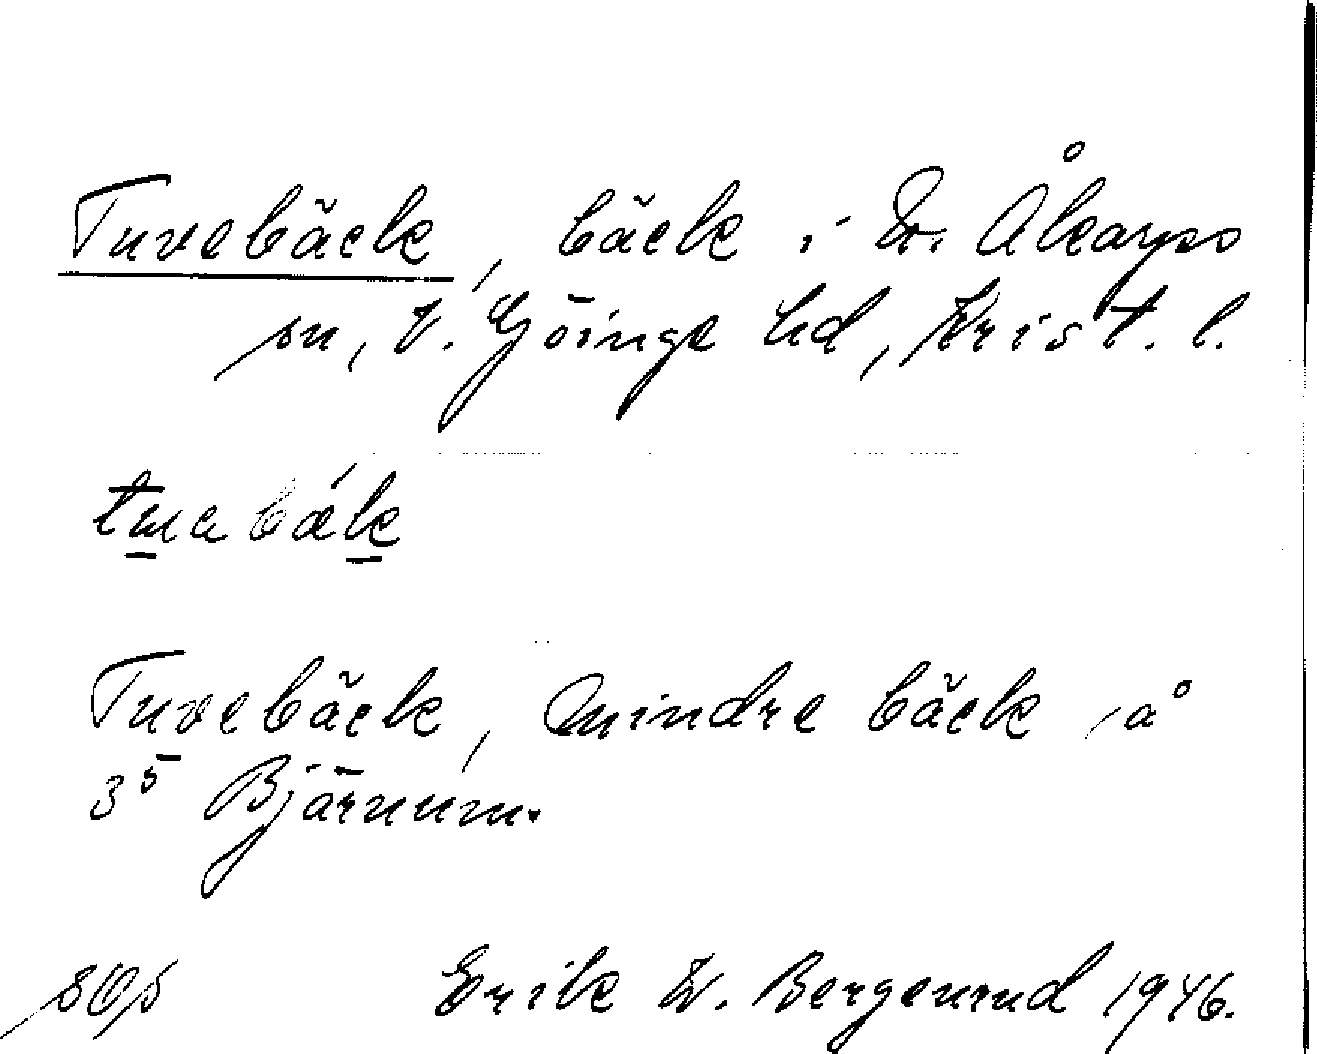 Tuvebäck, bäck i N. Åkarps
sn, V. Göinge hd, Krist. l.
Tuvebäck, mindre bäck å
3⁵ Bjärnum.
Erik W. Bergenrud 1946.